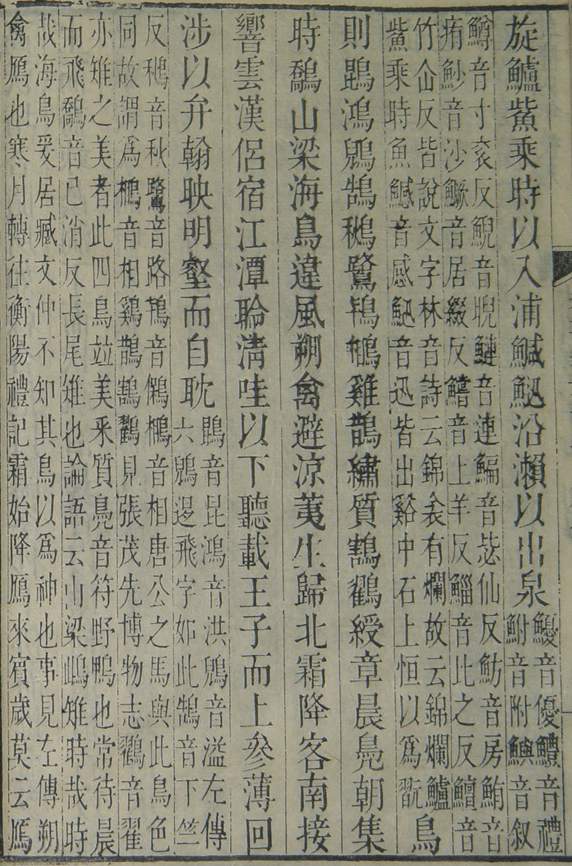 旋鱸鮆乘時以入浦鱤䱀沿瀨以出泉
鰀音優鱧音禮
鮒音附鱮音叙
鱒音寸衮反鯢音睨鰱音連鯿音毖仙反魴音房鮪音
痏魦音沙鱖音居綴反鱨音上羊反鯔音此之反鱣音
竹仚反皆說文字林音詩云錦衾有爛故云錦爛鱸
鮆乘時魚鱤音感䱀音迅皆出谿中石上恒以為翫
鳥
則鵾鴻鶂鵠鶖鷺鴇䳋雞鵲繡質鶷鸐綬章晨鳧朝集
時鷮山梁海鳥違風朔禽避涼荑生歸北霜降客南接
響雲漢侶宿江潭聆清哇以下聽載王子而上參薄回
涉以弁翰映明壑而自耽
鵾音昆鴻音洪鶂音溢左傳
六鶂退飛字如此鵠音下竺
反鶖音秋鷺音路鴇音䳋音相唐公之馬與此鳥色
同故謂為䳋音相鷄鵲鶷鸐見張茂先博物志鸐音翟
亦雉之美者此四鳥並美釆質鳧音符野鴨也常待晨
而飛鷮音已消反長尾雉也論語云山梁雌雉時哉時
哉海鳥爰居臧文仲不知其鳥以為神也事見左傳朔
禽鴈也寒月轉往衡陽禮記霜始降鴈來賓歲莫云鴈